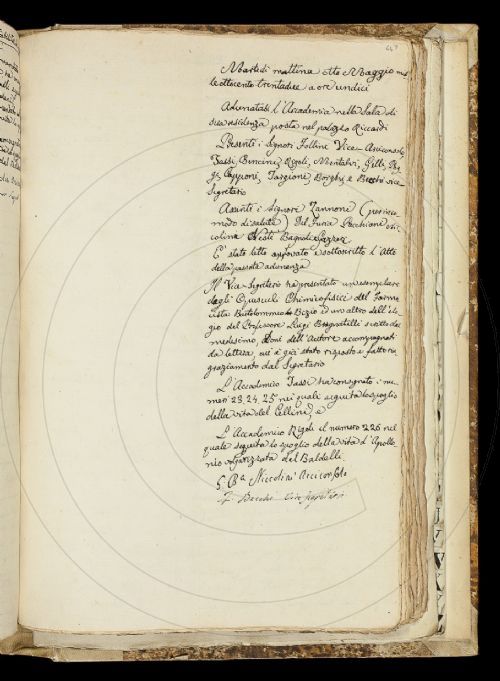 Martedì mattina otto Maggio mil
le ottocento trentadue a ore undici
Adunatasi l'Accademia nella Sala di
sua residenza posta nel palazzo Riccardi
Presenti i Signori Follini Vice-Arciconsolo
Tassi, Bencini, Rigoli, Montalvi, Gelli,
Capponi, Targioni, Borghi, e Becchi vice
Segretario
Assenti i Signori Zannoni (per inco
modo di salute) Del Furia
colini
E' stato letto approvato e sottoscritto l'Atto
della passata adunanza
Il Vice Segretario ha presentato un esemplare
degli Opuscoli Chimico fisici del Farma
cista Bartolommeo Bizio ed un altro dell'elo
gio del Professore Luigi Brugnatelli scritto dal
medesimo, Doni dell'Autore accompagnati
da lettera, cui è già stato risposto e fatto rin
graziamento dal Segretario
L'Accademico Tassi ha consegnato i nu
meri 23, 24, 25 nei quali seguita lo spoglio
della vita del Cellini, e
L'Accademico Rigoli il numero 226 nel
quale seguita lo spoglio della vita d'Apollo
nio volgarizzata del Baldelli.
G. Ba Niccolini Arciconsolo
F. Becchi Vice Segretario